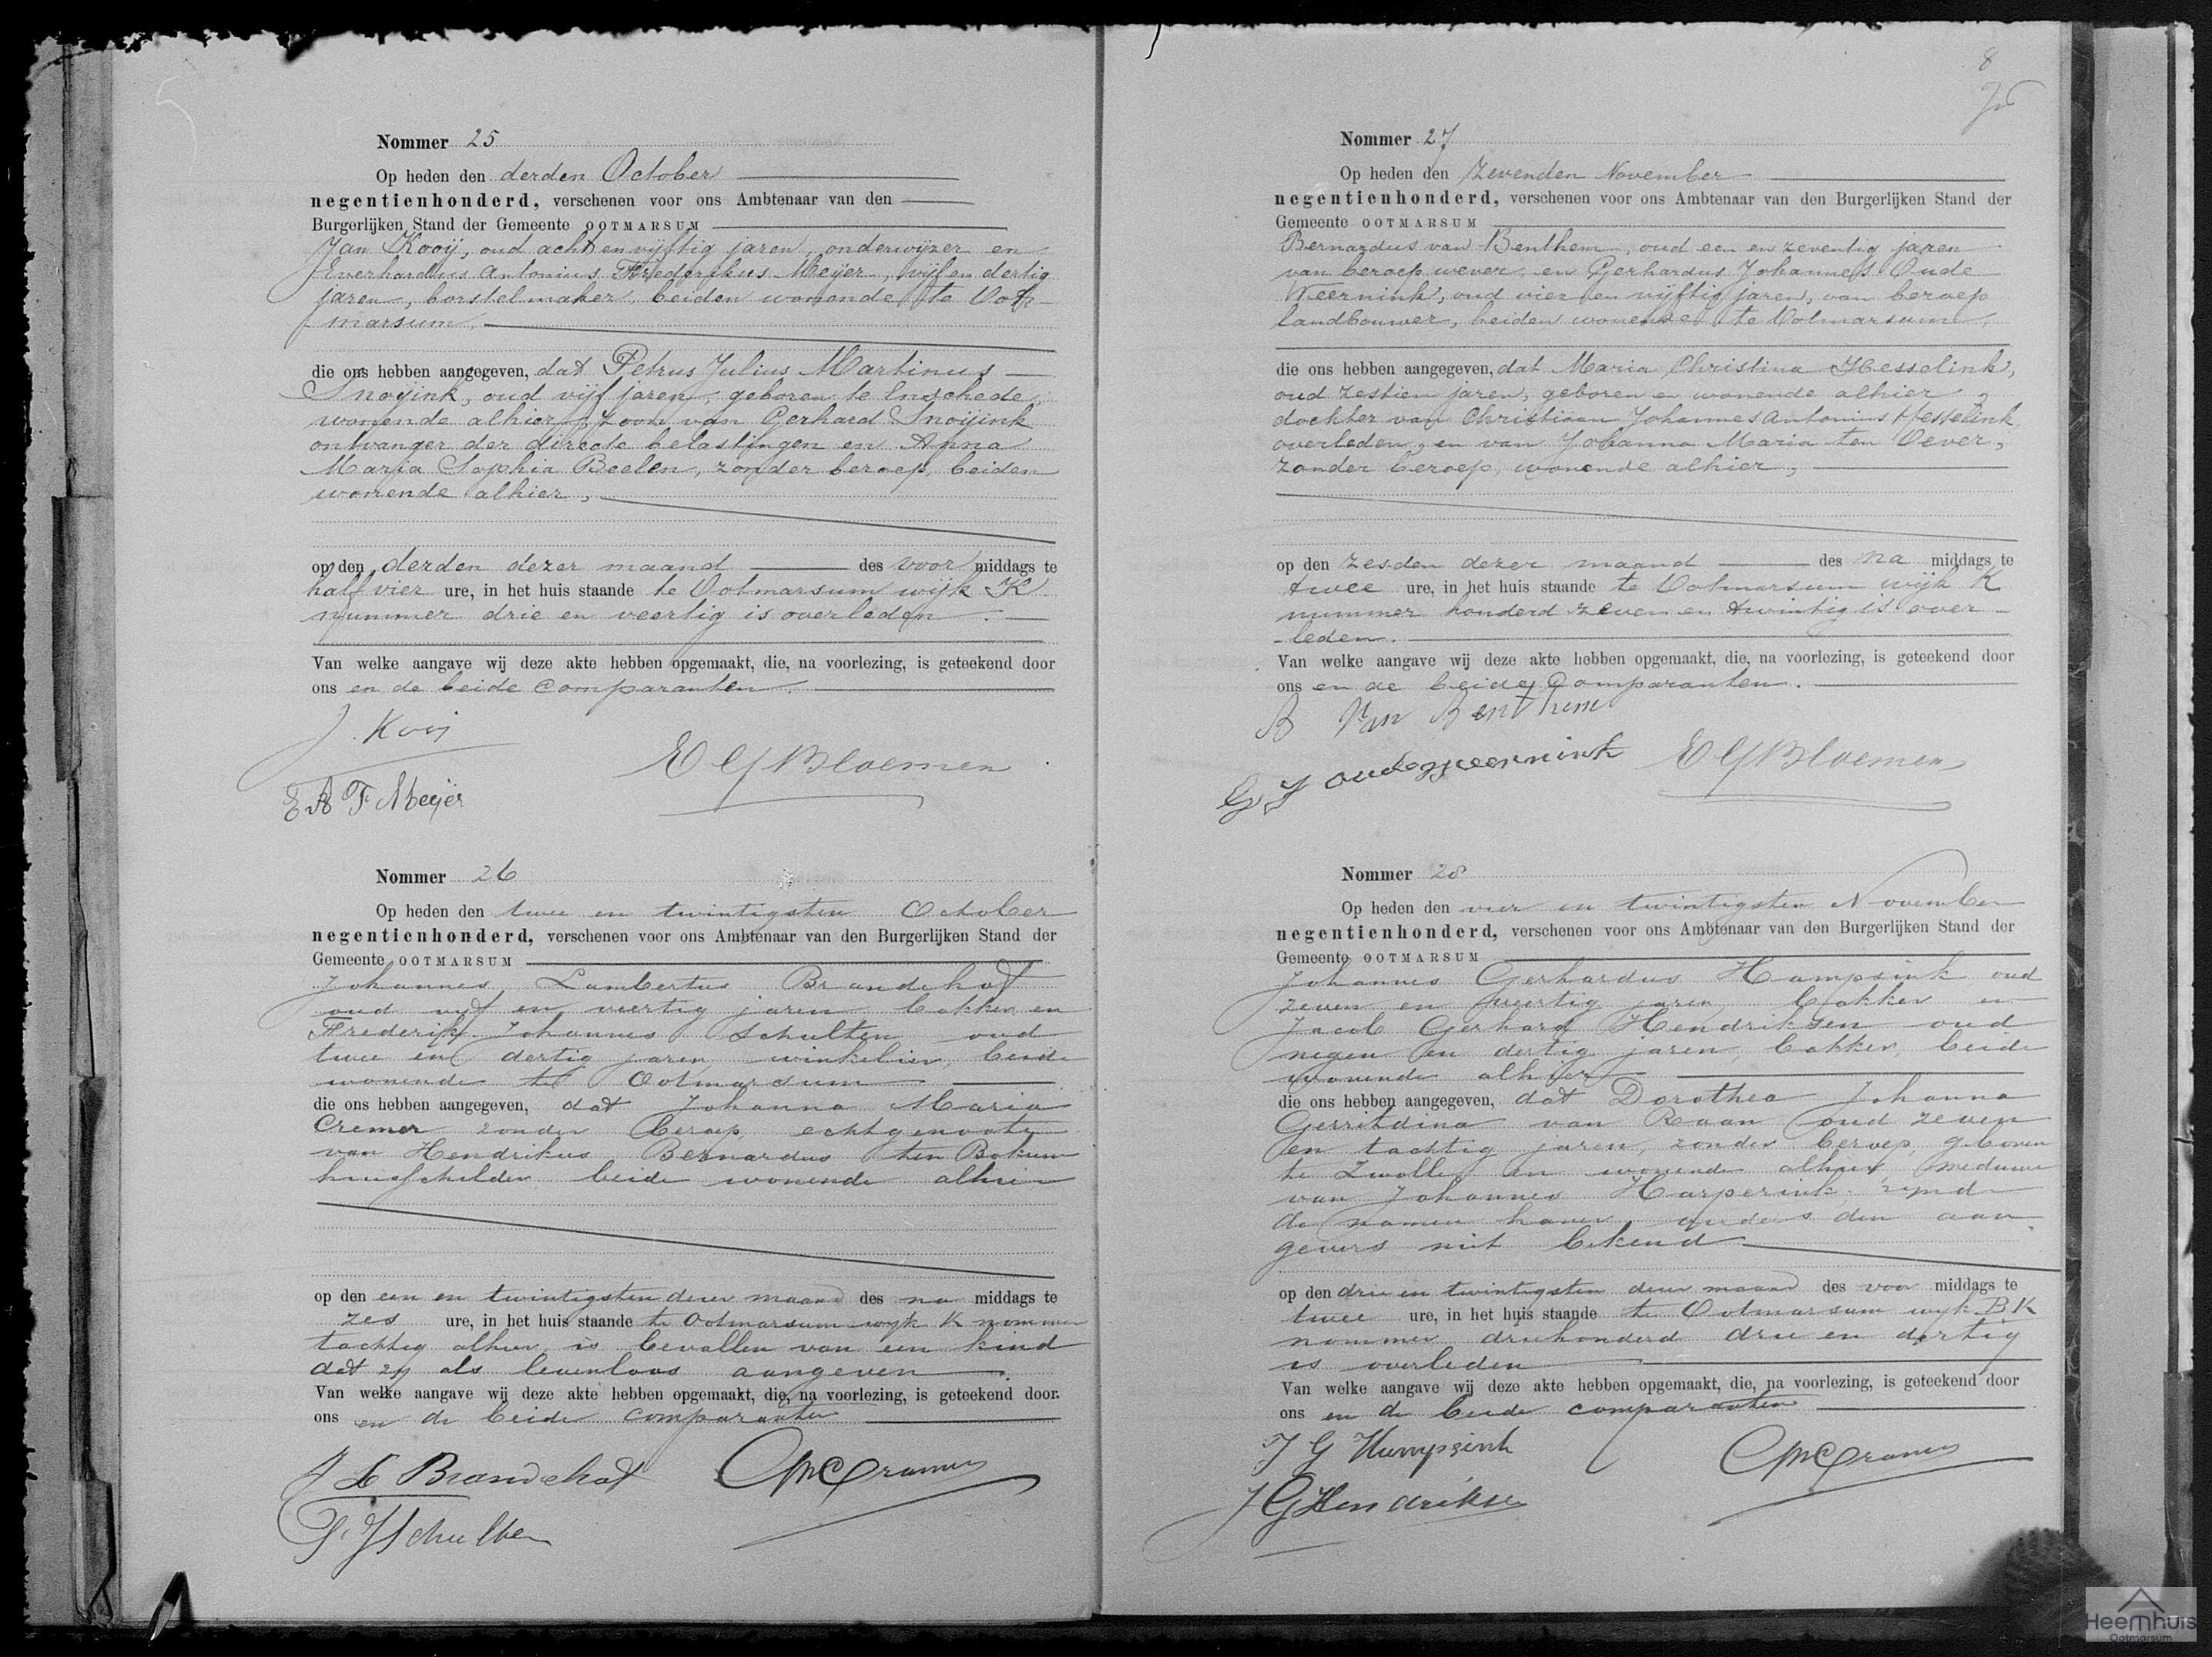 Nommer 25
Op heden den derden October
negentienhonderd, verschenen voor ons Ambtenaar van den
Burgerlijken Stand der Gemeente OOTMARSUM
Jan Kooij, oud acht en vijftig jaren, onderwijzer en
Everhardus Antonius Frederikus Meijer, vijf en dertig
jaren, borstelmaker, beiden wonende te Oot-
marsum,
die ons hebben aangegeven, dat Petrus Julius Martinus
Snoijink, oud vijf jaren, geboren te Enschede,
wonende alhier, zoon van Gerhard Snoijink
ontvanger der directe belastingen en Anna
Maria Sophia Beelen, zonder beroep, beiden
wonende alhier,
op den derden dezer maand des voor middags te
half vier ure, in het huis staande te Ootmarsum wijk K
nummer drie en veertig is overleden.
Van welke aangave wij deze akte hebben opgemaakt, die, na voorlezing, is geteekend door
ons en de beide comparanten.
J. Kooij
E G Bloemen
E A F Meijer
Nommer 26
Op heden den twee en twintigsten October
negentienhonderd, verschenen voor ons Ambtenaar van den Burgerlijken Stand der
Gemeente OOTMARSUM
Johannes Lambertus Brandehof
oud vijf en veertig jaren bakker en
Frederik Johannes Schulten oud
twee en dertig jaren, winkelier, beide
wonende te Ootmarsum
die ons hebben aangegeven, dat Johanna Maria
Cremer zonder beroep, echtgenoote
van Hendrikus Bernardus ten Bokum
huisschilder beide wonende alhier
op den een en twintigsten dezer maand des na middags te
zes ure, in het huis staande te Ootmarsum wijk K nommer
tachtig alhier, is bevallen van een kind
dat zij als levenloos aangeven
Van welke aangave wij deze akte hebben opgemaakt, die, na voorlezing, is geteekend door.
ons en de beide comparanten
J L Brandehof
F. J Schulten
8
Nommer 27
Op heden den zevenden November
negentienhonderd, verschenen voor ons Ambtenaar van den Burgerlijken Stand der
Gemeente OOTMARSUM
Bernardus van Benthem, oud een en zeventig jaren
van beroep wever, en Gerhardus Johannes Oude
Weernink, oud vier en vijftig jaren, van beroep
landbouwer, beiden wonende te Ootmarsum,
die ons hebben aangegeven, dat Maria Christina Hesselink,
oud zestien jaren, geboren en wonende alhier
dochter van Christiaan Johannes Antonius Hesselink,
overleden, en van Johanna Maria ten Oever,
zonder beroep, wonende alhier,
op den zesden dezer maand des na middags te
twee ure, in het huis staande te Ootmarsum wijk K
nummer honderd zeven en twintig is over-
leden.
Van welke aangave wij deze akte hebben opgemaakt, die, na voorlezing, is geteekend door
ons en de beide Comparanten.
B Van Benthem
G J oude weernink
E G Bloemen
Nommer 28
Op heden den vier en twintigsten November
negentienhonderd, verschenen voor ons Ambtenaar van den Burgerlijken Stand der
Gemeente OOTMARSUM
Johannes Gerhardus Hampsink oud
zeven en veertig jaren bakker en
Jacob Gerhard Hendriksen oud
negen en dertig jaren, bakker, beide
wonende alhier
die ons hebben aangegeven, dat Dorothea Johanna
Gerritdina van Raan oud zeven
en tachtig jaren, zonder beroep, geboren
te Zwolle en wonende alhier, weduwe
van Johannes Harperink zijnde
de namen harer ouders den aan-
gevers niet bekend
op den drie en twintigsten dezer maand des voor middags te
twee ure, in het huis staande te Ootmarsum wijk BK
nommer driehonderd drie en dertig
is overleden
Van welke aangave wij deze akte hebben opgemaakt, die, na voorlezing, is geteekend door
ons en de beide comparanten
J G Hampsink
J G Hendriksen
Heemhuis
Ootmarsum